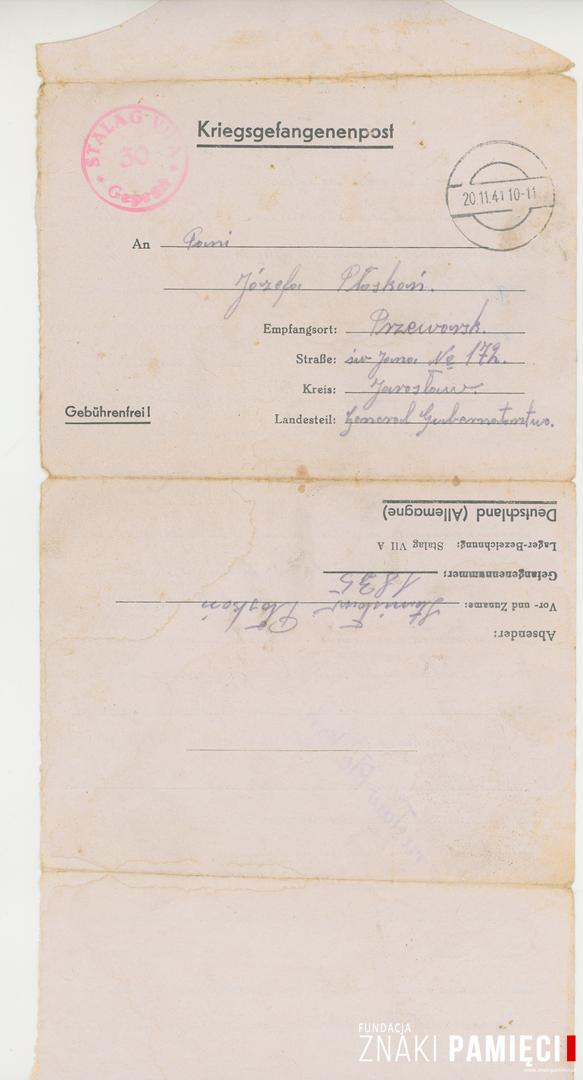 STALAG VII A
30
Geprüft
Kriegsgefangenenpost
20.11.41 10-11
An Pani
Józefa Płoskoń.
Empfangsort: Przeworsk.
Straße: św Jana № 172.
Kreis: Jarosław.
Gebührenfrei!
Landesteil: General Gubernatorstwo.
Deutschland (Allemagne)
Lager-Bezeichnung: Stalag VII A
Gefangenennummer: 1835
Vor- und Zuname: Stanisław Płoskoń
Absender:
FUNDACJA
ZNAKI PAMIĘCI
www.znakipamieci.pl